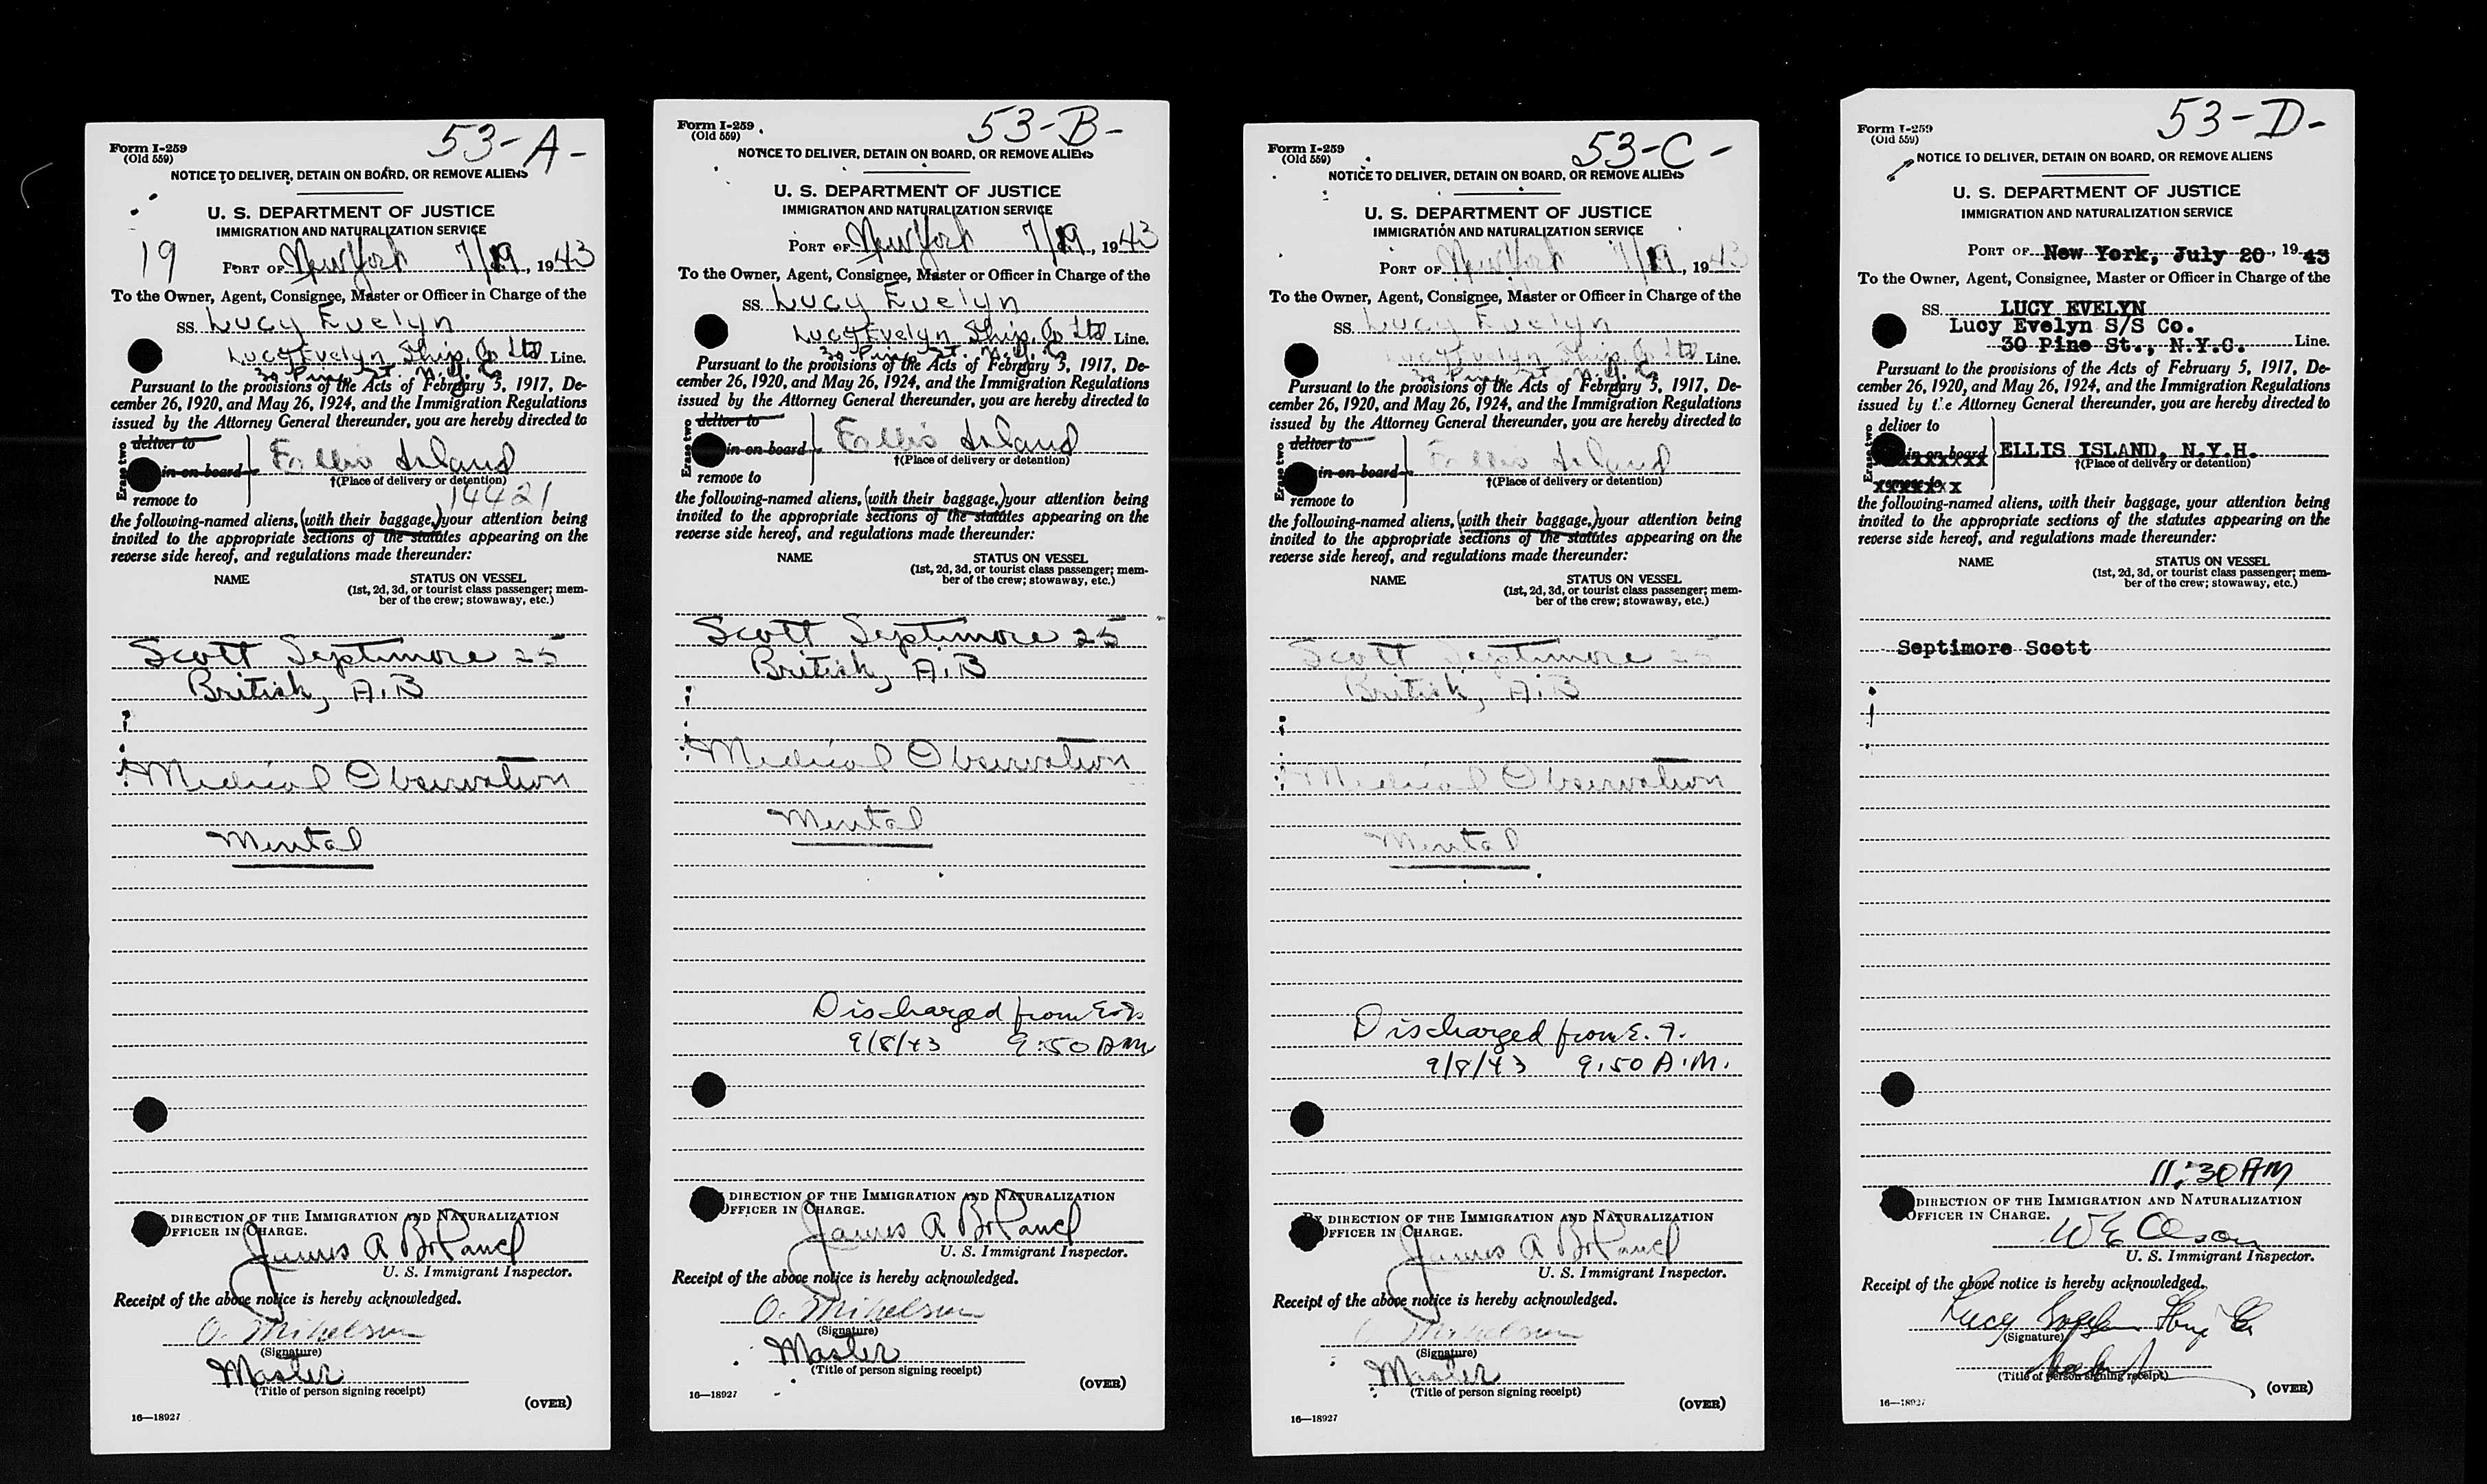 53-A-
Form I-259
(Old 559)
NOTICE TO DELIVER, DETAIN ON BOARD, OR REMOVE ALIENS
U. S. DEPARTMENT OF JUSTICE
IMMIGRATION AND NATURALIZATION SERVICE
19
PORT OF New York 7/19, 1943
To the Owner, Agent, Consignee, Master or Officer in Charge of the
SS. Lucy Evelyn
Lucy Evelyn Ship. Co Ltd Line.
30 Pine St. N.Y.C
Pursuant to the provisions of the Acts of February 5, 1917, De-
cember 26, 1920, and May 26, 1924, and the Immigration Regulations
issued by the Attorney General thereunder, you are hereby directed to
Erase two
deliver to
in on board
remove to
Ellis Island
†(Place of delivery or detention)
14421
the following-named aliens, (with their baggage,) your attention being
invited to the appropriate sections of the statutes appearing on the
reverse side hereof, and regulations made thereunder:
NAME STATUS ON VESSEL
(1st, 2d, 3d, or tourist class passenger; mem-
ber of the crew; stowaway, etc.)
Scott Septimore 25
British, A.B
Medical Observation
Mental
DIRECTION OF THE IMMIGRATION AND NATURALIZATION
OFFICER IN CHARGE.
James A
U. S. Immigrant Inspector.
Receipt of the above notice is hereby acknowledged.
O. Mikelson
(Signature)
Master
(Title of person signing receipt)
(OVER)
16—18927
53-B-
Form I-259
(Old 559)
NOTICE TO DELIVER, DETAIN ON BOARD, OR REMOVE ALIENS
U. S. DEPARTMENT OF JUSTICE
IMMIGRATION AND NATURALIZATION SERVICE
PORT OF New York 7/19, 1943
To the Owner, Agent, Consignee, Master or Officer in Charge of the
SS. Lucy Evelyn
Lucy Evelyn Ship. Co Ltd Line.
30 Pine St. N.Y.C
Pursuant to the provisions of the Acts of February 5, 1917, De-
cember 26, 1920, and May 26, 1924, and the Immigration Regulations
issued by the Attorney General thereunder, you are hereby directed to
Erase two
deliver to
in on board
remove to
Ellis Island
†(Place of delivery or detention)
the following-named aliens, (with their baggage,) your attention being
invited to the appropriate sections of the statutes appearing on the
reverse side hereof, and regulations made thereunder:
NAME STATUS ON VESSEL
(1st, 2d, 3d, or tourist class passenger; mem-
ber of the crew; stowaway, etc.)
Scott Septimore 25
British, A.B
Medical Observation
Mental
Discharged from E.I.
9/8/43 9:50 AM
DIRECTION OF THE IMMIGRATION AND NATURALIZATION
OFFICER IN CHARGE.
James A
U. S. Immigrant Inspector.
Receipt of the above notice is hereby acknowledged.
O. Mikelson
(Signature)
Master
(Title of person signing receipt)
(OVER)
16—18927
53-C-
Form I-259
(Old 559)
NOTICE TO DELIVER, DETAIN ON BOARD, OR REMOVE ALIENS
U. S. DEPARTMENT OF JUSTICE
IMMIGRATION AND NATURALIZATION SERVICE
PORT OF New York 7/19, 1943
To the Owner, Agent, Consignee, Master or Officer in Charge of the
SS. Lucy Evelyn
Lucy Evelyn Ship. Co Ltd Line.
30 Pine St. N.Y.C
Pursuant to the provisions of the Acts of February 5, 1917, De-
cember 26, 1920, and May 26, 1924, and the Immigration Regulations
issued by the Attorney General thereunder, you are hereby directed to
Erase two
deliver to
in on board
remove to
Ellis Island
†(Place of delivery or detention)
the following-named aliens, (with their baggage,) your attention being
invited to the appropriate sections of the statutes appearing on the
reverse side hereof, and regulations made thereunder:
NAME STATUS ON VESSEL
(1st, 2d, 3d, or tourist class passenger; mem-
ber of the crew; stowaway, etc.)
Scott Septimore 25
British, A.B
Medical Observation
Mental
Discharged from E.I.
9/8/43 9:50 A.M.
BY DIRECTION OF THE IMMIGRATION AND NATURALIZATION
OFFICER IN CHARGE.
James A
U. S. Immigrant Inspector.
Receipt of the above notice is hereby acknowledged.
O. Mikelson
(Signature)
Master
(Title of person signing receipt)
(OVER)
16—18927
53-D-
Form I-259
(Old 559)
NOTICE TO DELIVER, DETAIN ON BOARD, OR REMOVE ALIENS
U. S. DEPARTMENT OF JUSTICE
IMMIGRATION AND NATURALIZATION SERVICE
PORT OF New York, July 20, 1943
To the Owner, Agent, Consignee, Master or Officer in Charge of the
SS. LUCY EVELYN
Lucy Evelyn S/S Co.
30 Pine St., N.Y.C. Line.
Pursuant to the provisions of the Acts of February 5, 1917, De-
cember 26, 1920, and May 26, 1924, and the Immigration Regulations
issued by the Attorney General thereunder, you are hereby directed to
Erase two
deliver to
in on board
remove to
ELLIS ISLAND, N.Y.H.
†(Place of delivery or detention)
the following-named aliens, with their baggage, your attention being
invited to the appropriate sections of the statutes appearing on the
reverse side hereof, and regulations made thereunder:
NAME STATUS ON VESSEL
(1st, 2d, 3d, or tourist class passenger; mem-
ber of the crew; stowaway, etc.)
Septimore Scott
11:30 AM
DIRECTION OF THE IMMIGRATION AND NATURALIZATION
OFFICER IN CHARGE.
W E Olson
U. S. Immigrant Inspector.
Receipt of the above notice is hereby acknowledged.
Lucy Evelyn Ship Co
(Signature)
(Title of person signing receipt)
(OVER)
16—18927